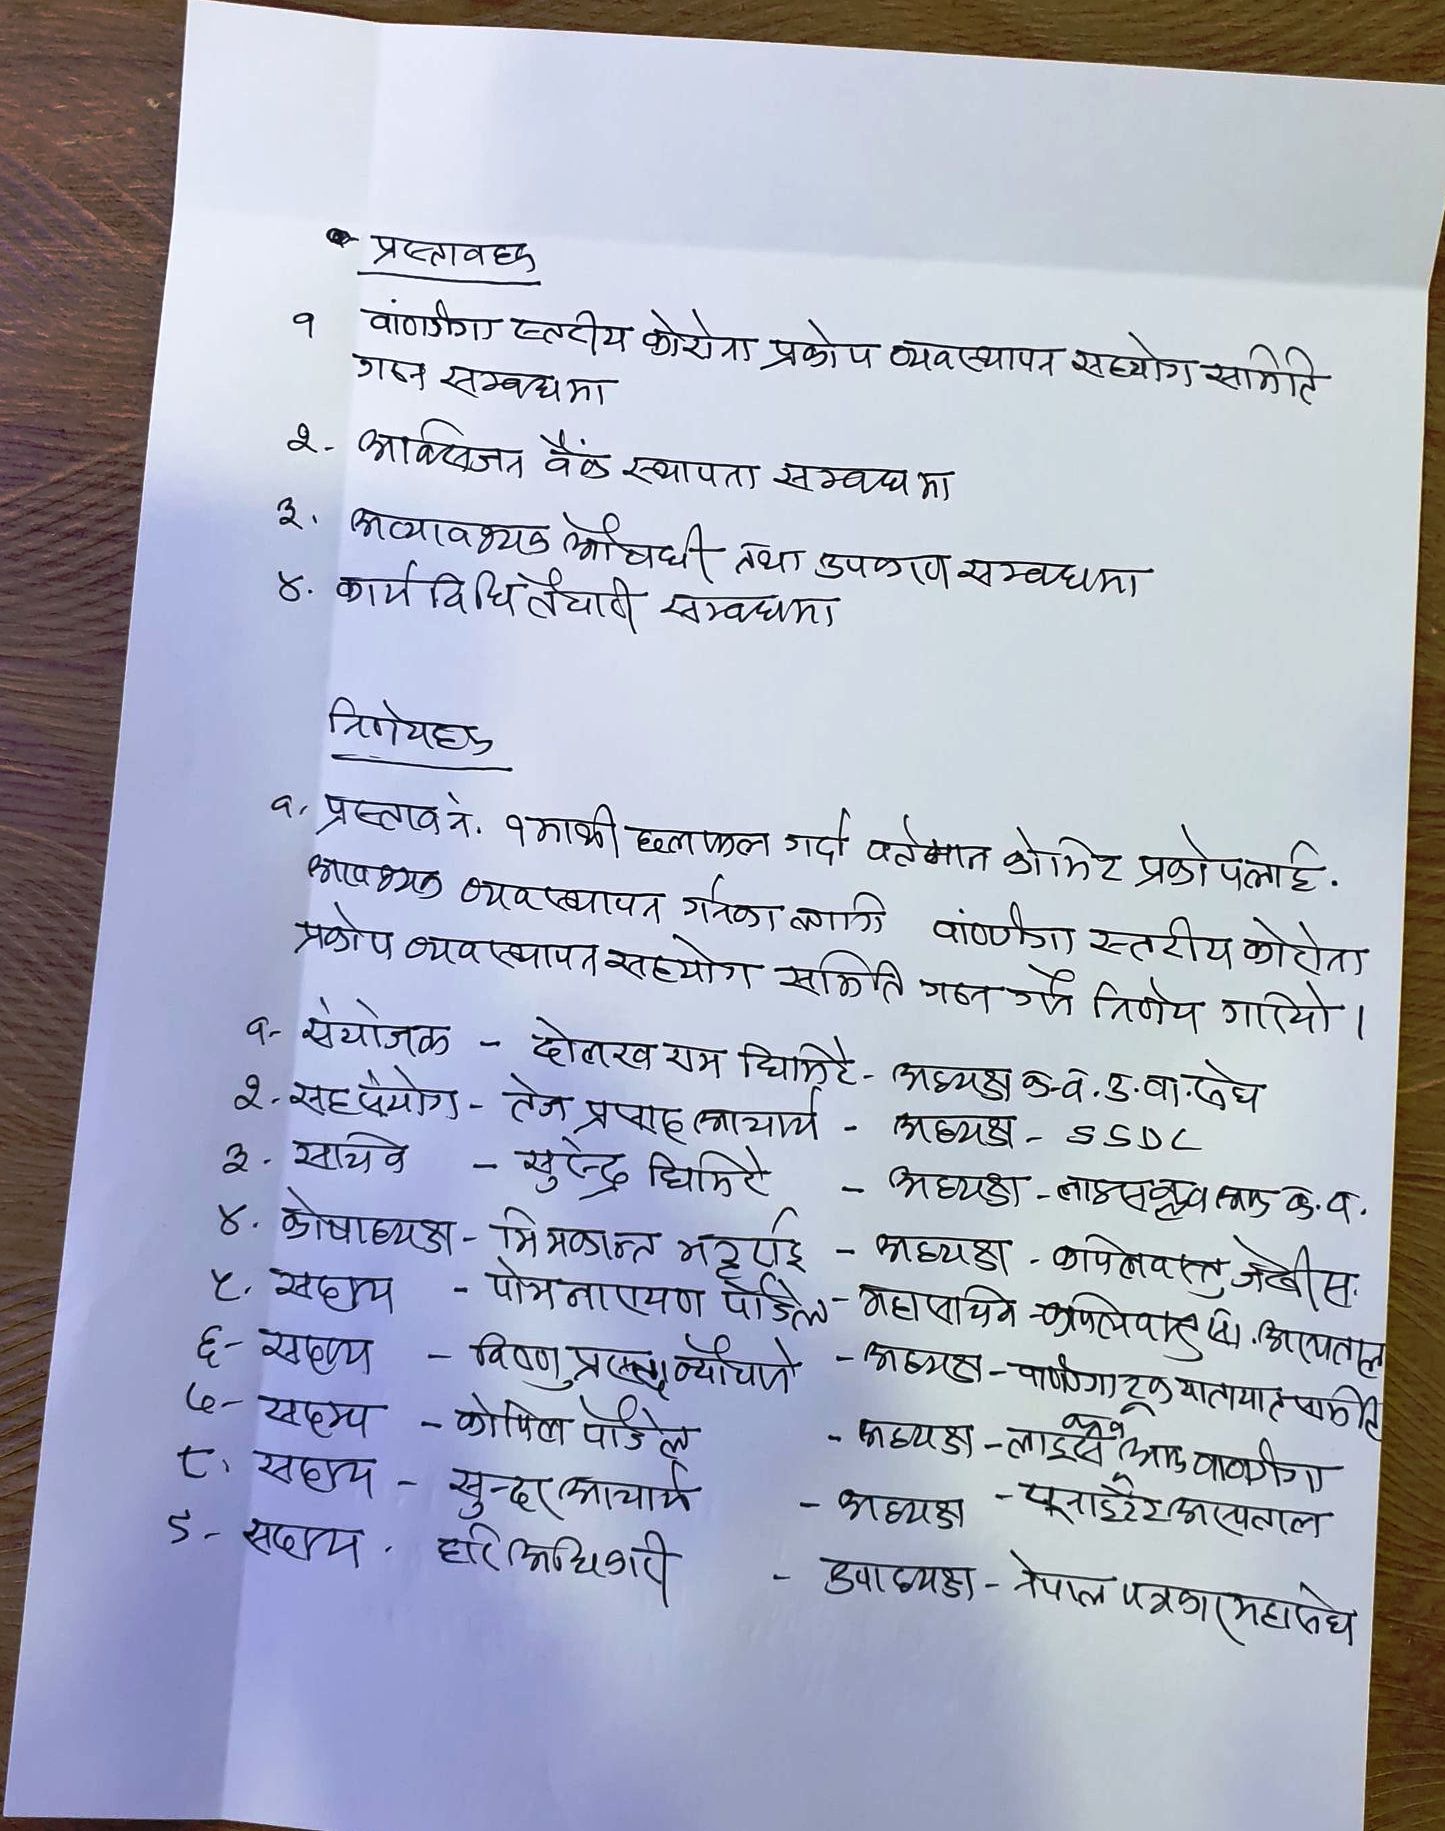 प्रस्तावहरू
१ वांणगंगा स्तरीय कोरोना प्रकोप व्यवस्थापन सहयोग समिति
गठन सम्बन्धमा
२- अक्सिजन बैंक स्थापना सम्बन्धमा
३. अत्यावश्यक औषधी तथा उपकरण सम्बन्धमा
४. कार्यविधि तयारी सम्बन्धमा
निर्णयहरू
१. प्रस्ताव नं. १ माथी छलफल गर्दा वर्तमान कोभिड प्रकोपलाई.
आवश्यक व्यवस्थापन गर्नका लागि वांणगंगा स्तरीय कोरोना
प्रकोप व्यवस्थापन सहयोग समिति गठन गर्ने निर्णय गरियो ।
१- संयोजक - दोलख राम घिमिरे - अध्यक्ष क.व.उ.वा.संघ
२- सहसंयोग - तेज प्रसाद आचार्य - अध्यक्ष - SSDC
३. सचिव - सुरेन्द्र घिमिरे - अध्यक्ष - लायन्सक्लव अफ क.व.
४. कोषाध्यक्ष - मित्रकान्त भट्टराई - अध्यक्ष - कपिलवस्तु जेसीस
५. सदस्य - पोमनारायण पौडेल - महासचिव - कपिलवस्तु अस्पताल
६- सदस्य - विष्णु प्रसाद न्यौपाने - अध्यक्ष - वाणगंगा ट्रक यातायात समिति
७- सदस्य - कोपिल पौडेल - अध्यक्ष - लाइन्स क्लव अफ वाणगंगा
८. सदस्य - सुन्दर आचार्य - अध्यक्ष - यूनाइटेड अस्पताल
९- सदस्य . हरि अधिकारी - उपाध्यक्ष - नेपाल पत्रकार महासंघ